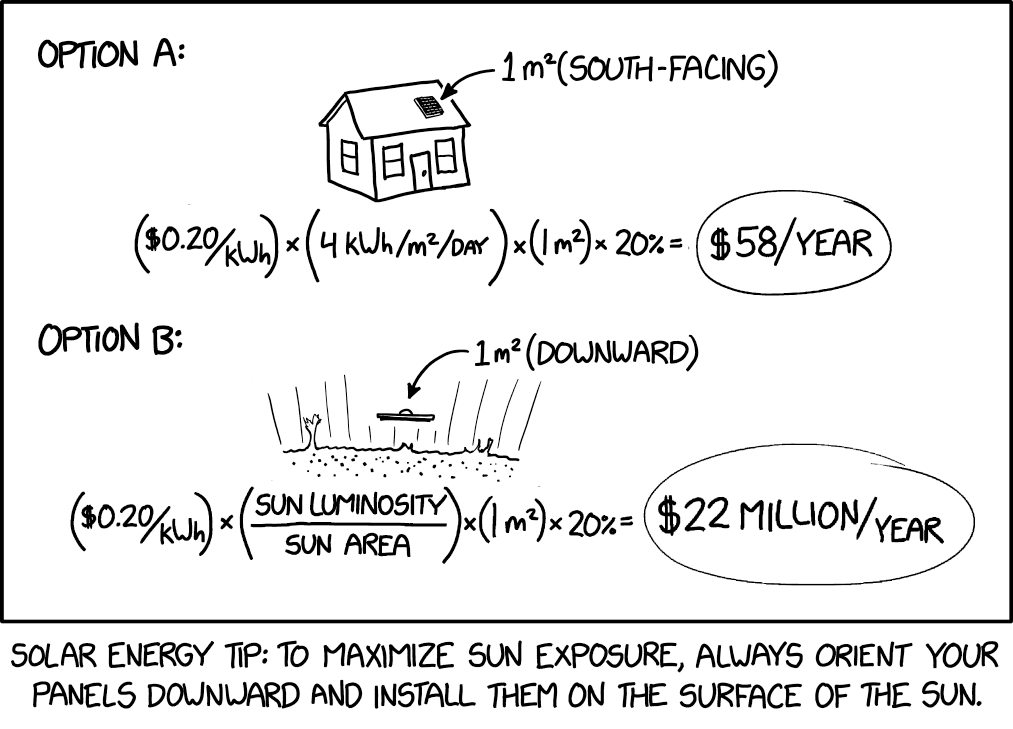 OPTION A:
1 m² (SOUTH-FACING)
($0.20/kWh) × (4 kWh/m²/DAY) × (1 m²) × 20% = $58/YEAR
OPTION B:
1 m² (DOWNWARD)
($0.20/kWh) × (SUN LUMINOSITY/SUN AREA) × (1 m²) × 20% = $22 MILLION/YEAR
SOLAR ENERGY TIP: TO MAXIMIZE SUN EXPOSURE, ALWAYS ORIENT YOUR
PANELS DOWNWARD AND INSTALL THEM ON THE SURFACE OF THE SUN.